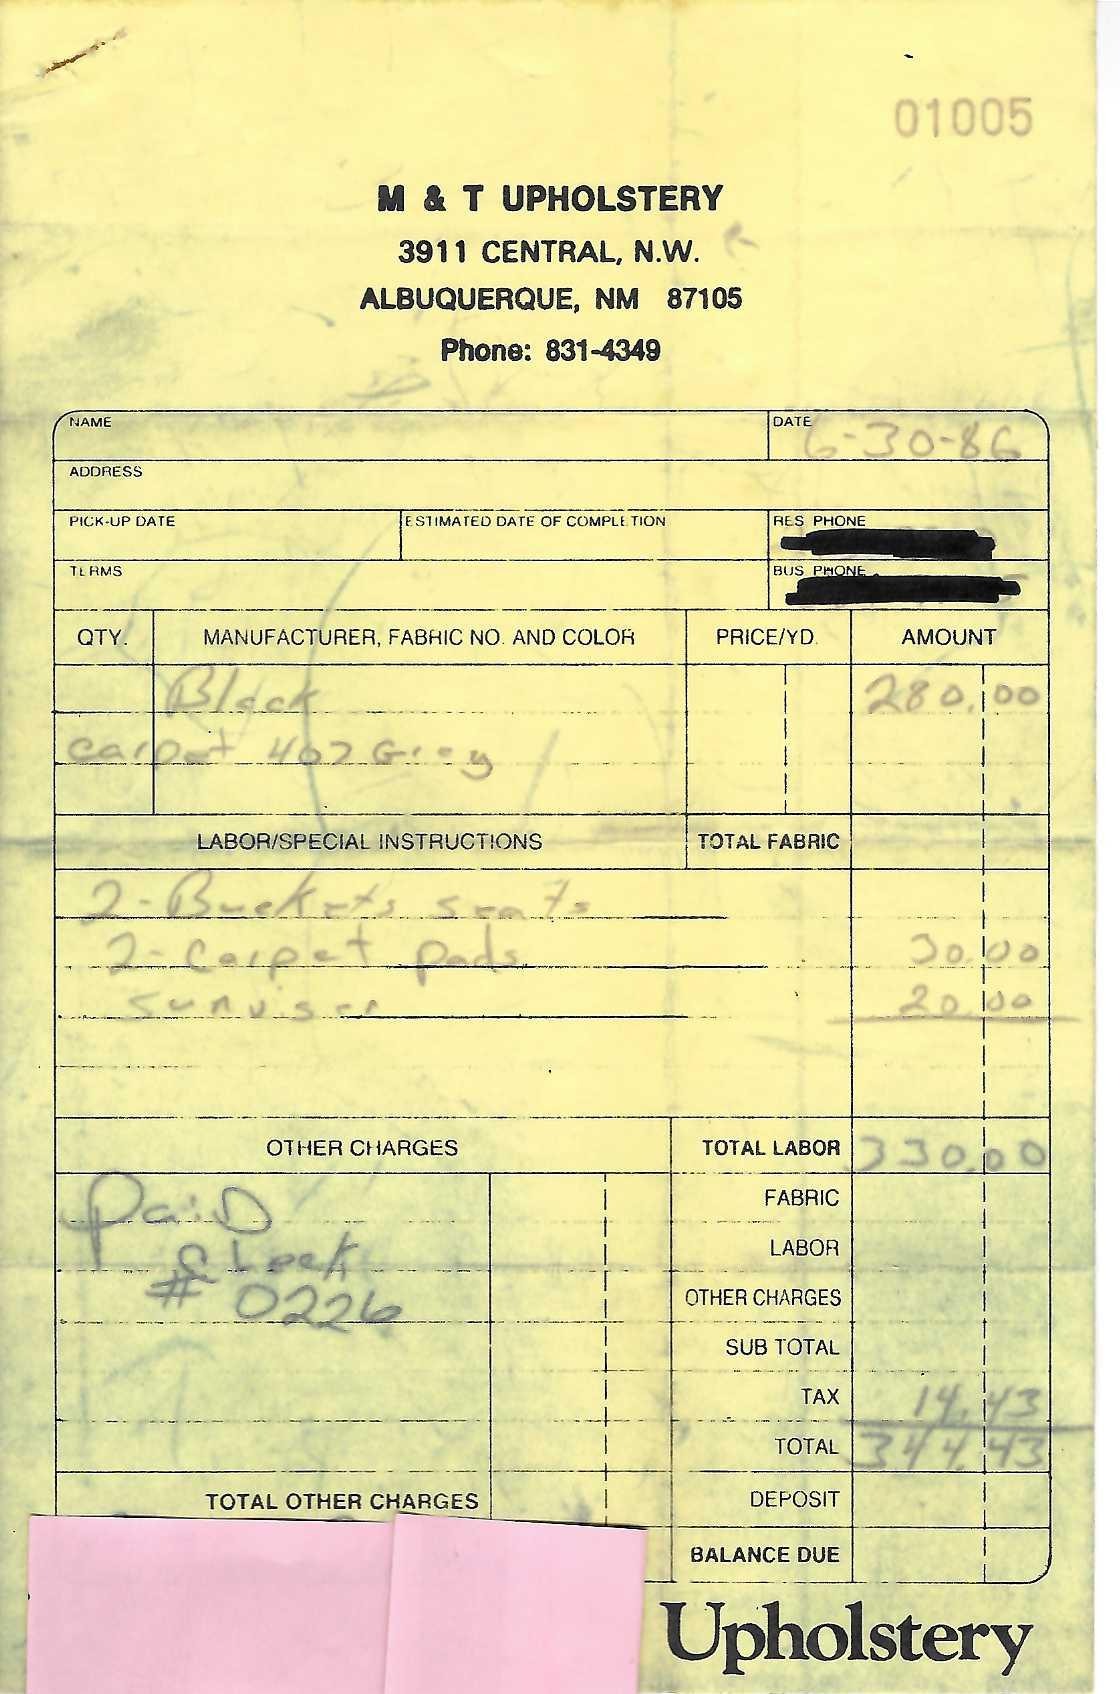 01005
M & T UPHOLSTERY
3911 CENTRAL, N.W.
ALBUQUERQUE, NM 87105
Phone: 831-4349
NAME DATE 6-30-86
ADDRESS
PICK-UP DATE ESTIMATED DATE OF COMPLETION RES PHONE
TERMS BUS PHONE
QTY. MANUFACTURER, FABRIC NO. AND COLOR PRICE/YD. AMOUNT
Black 280.00
Carpet 407 Grey
LABOR/SPECIAL INSTRUCTIONS TOTAL FABRIC
2-Buckets seats
2-Carpet pads 30.00
Sunviser 20.00
OTHER CHARGES TOTAL LABOR 330.00
Paid FABRIC
Check LABOR
# 0226 OTHER CHARGES
SUB TOTAL
TAX 14.43
TOTAL 344.43
TOTAL OTHER CHARGES DEPOSIT
BALANCE DUE
Upholstery